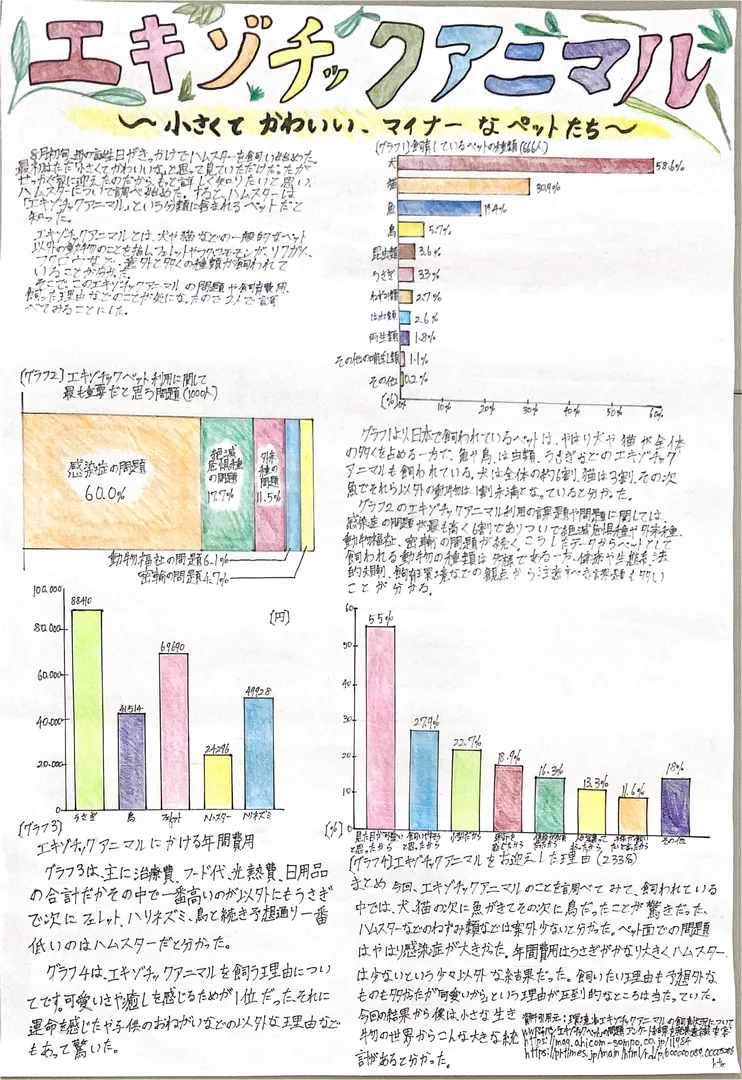 エキゾチックアニマル
～小さくて かわいい、マイナーなペットたち～
8月初旬、
最初はただ小さくてかわいいな、と思って見ていただけだったが
せっかく家に迎えたのだからもっと詳しく知りたいと思い、
ハムスターについて調べ始めた。すると、ハムスターは
「エキゾチックアニマル」という分類に含まれるペットだと
知った。
エキゾチックアニマルとは、犬や猫などの一般的なペット
以外の動物のことを指し、フェレットやフクロモモンガ、リクガメ、
フクロウなど、意外と多くの種類が飼われて
いることが分かった。
そこで、このエキゾチックアニマルの問題や飼育費用、
飼った理由などのことが気になったので2人で調
べてみることにした。
[グラフ1]飼育しているペットの種類(666人)
犬 58.6%
猫 30.9%
魚 19.4%
鳥 5.7%
昆虫類 3.6%
うさぎ 3.3%
ねずみ類 2.7%
は虫類 2.6%
両生類 1.8%
その他の哺乳類 1.1%
その他 0.2%
[%] 10% 20% 30% 40% 50% 60%
[グラフ2]エキゾチックペット利用に関して
最も重要だと思う問題(1000人)
感染症の問題
60.0%
絶滅
危惧種
の問題
17.7%
外来
種の
問題
11.5%
動物福祉の問題6.1%
密輸の問題4.7%
グラフ1より、日本で飼われているペットは、やはり犬や猫が全体
の多くを占める一方で、魚や鳥、は虫類、うさぎなどのエキゾチック
アニマルも飼われている。犬は全体の約6割、猫は3割、その次
魚でそれら以外の動物は1割未満となっていると分かった。
グラフ2のエキゾチックアニマル利用の課題や問題に関しては、
感染症の問題が最も高く6割でありついで絶滅危惧種や外来種、
動物福祉、密輸の問題が続く。こうしたデータからペットとして
飼われる動物の種類は多様である一方、健康や生態系、法
的規制、飼育環境などの観点から注意すべき課題も多い
ことが分かる。
100.000
80.000
60.000
40.000
20.000
0
[円]
88410
41514
69690
24296
49928
うさぎ 鳥 フェレット ハムスター ハリネズミ
[グラフ3]
エキゾチックアニマルにかける年間費用
60
50
40
30
20
10
0
[%]
55%
27.9%
22.7%
18.9%
16.3%
13.3%
11.6%
18%
見た目が可愛い
と思ったから
小型だから
その他
[グラフ4]エキゾチックアニマルをお迎えした理由(233名)
グラフ3は、主に治療費、フード代、光熱費、日用品
の合計だがその中で一番高いのが以外にもうさぎ
で次にフェレット、ハリネズミ、鳥と続き予想通り一番
低いのはハムスターだと分かった。
グラフ4は、エキゾチックアニマルを飼う理由につい
てです。可愛いさや癒しを感じるためが1位だった。それに
運命を感じたや子供のおねがいなどの以外な理由など
もあって驚いた。
まとめ 今回、エキゾチックアニマルのことを調べてみて、飼われている
中では、犬、猫の次に魚がきてその次に鳥だったことが驚きだった、
ハムスターなどのねずみ類などは案外少ないと分かった。ペット面での問題
はやはり感染症が大きかった。年間費用はうさぎがかなり大きくハムスター
は少ないという少々以外な結果だった。飼いたい理由も予想外な
ものも多かったが可愛いからという理由が圧倒的なところは当たっていた。
今回の結果から僕は、小さな生き
物の世界からこんな大きな統
計があると分かった。
資料引用元：環境省エキゾチックアニマルの飼育状況について